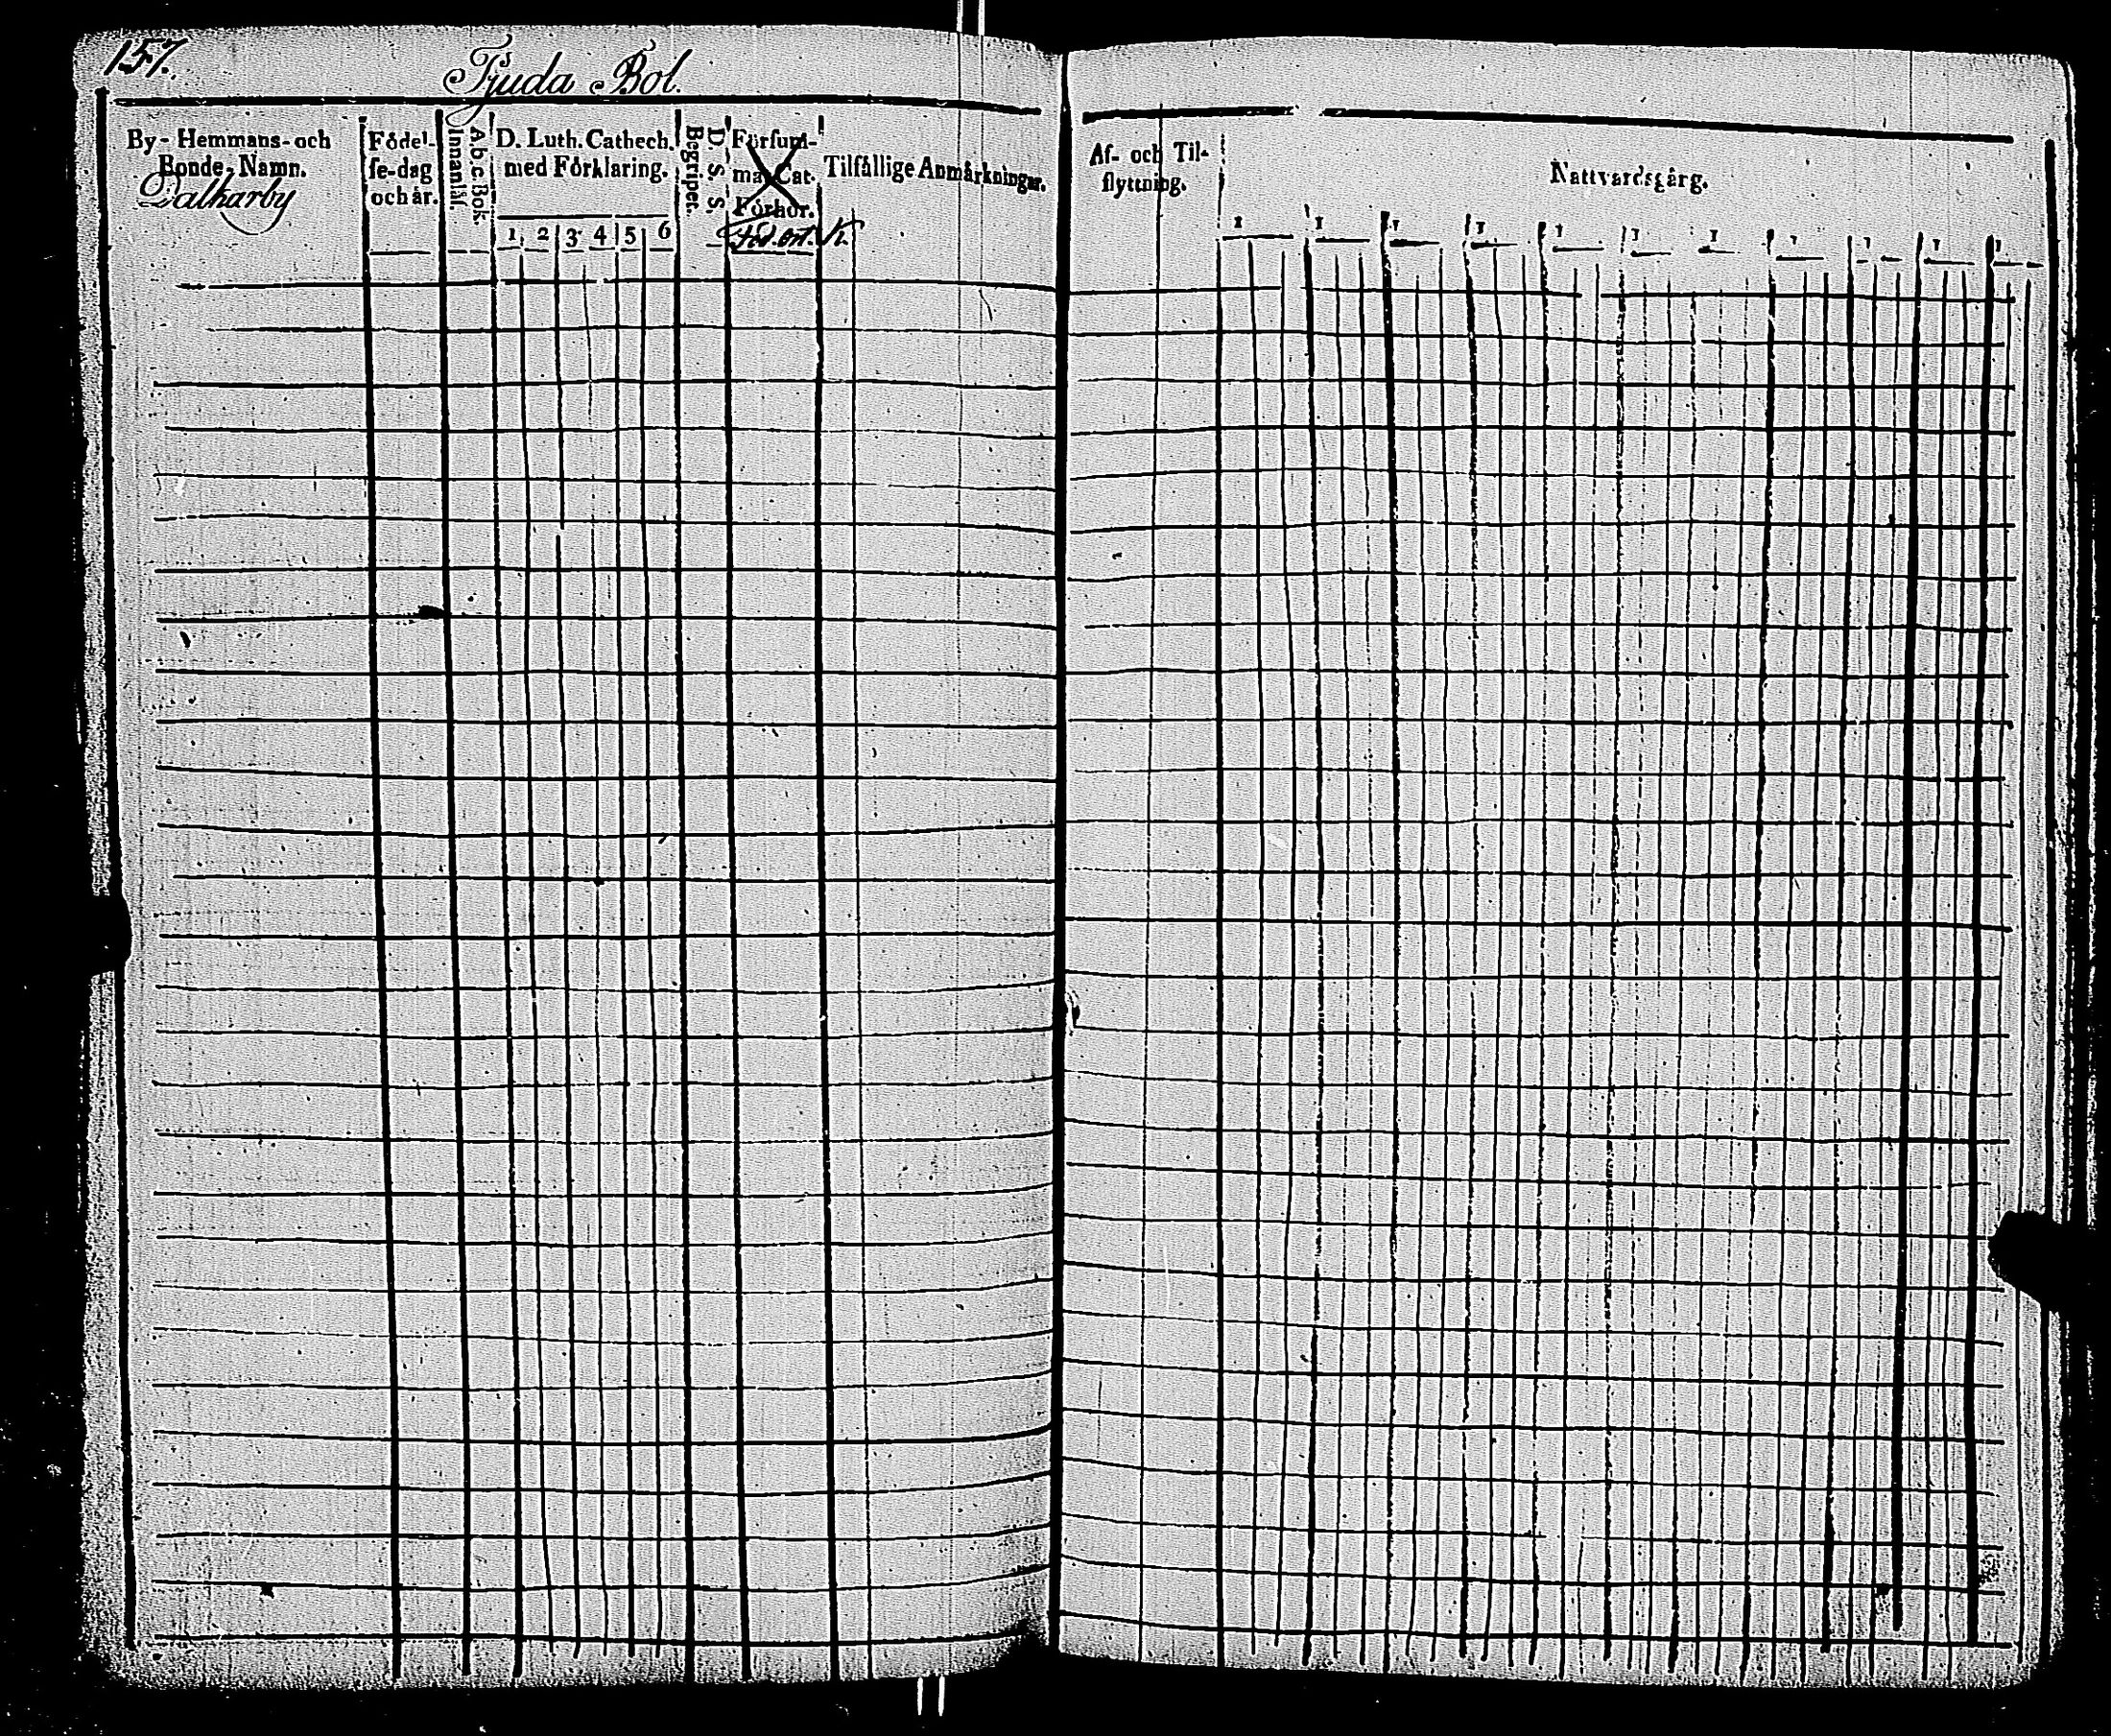 157.
Tjuda Bol.
By-Hemmans-och
Bonde-Namn.
Dalkarby
Födel-
se-dag
och år.
A.b.c. Bok.
Innanläs.
D. Luth. Cathech.
med Förklaring.
1 2 3 4 5 6
D. S. S.
Begripet.
Försum-
ma Cat.
Förhör.
Föd. ort. K.
Tilfällige Anmärkningar.
Af- och Til-
flyttning.
Nattvardsgång.
1 1 1 1 1 1 1 1 1 1 1